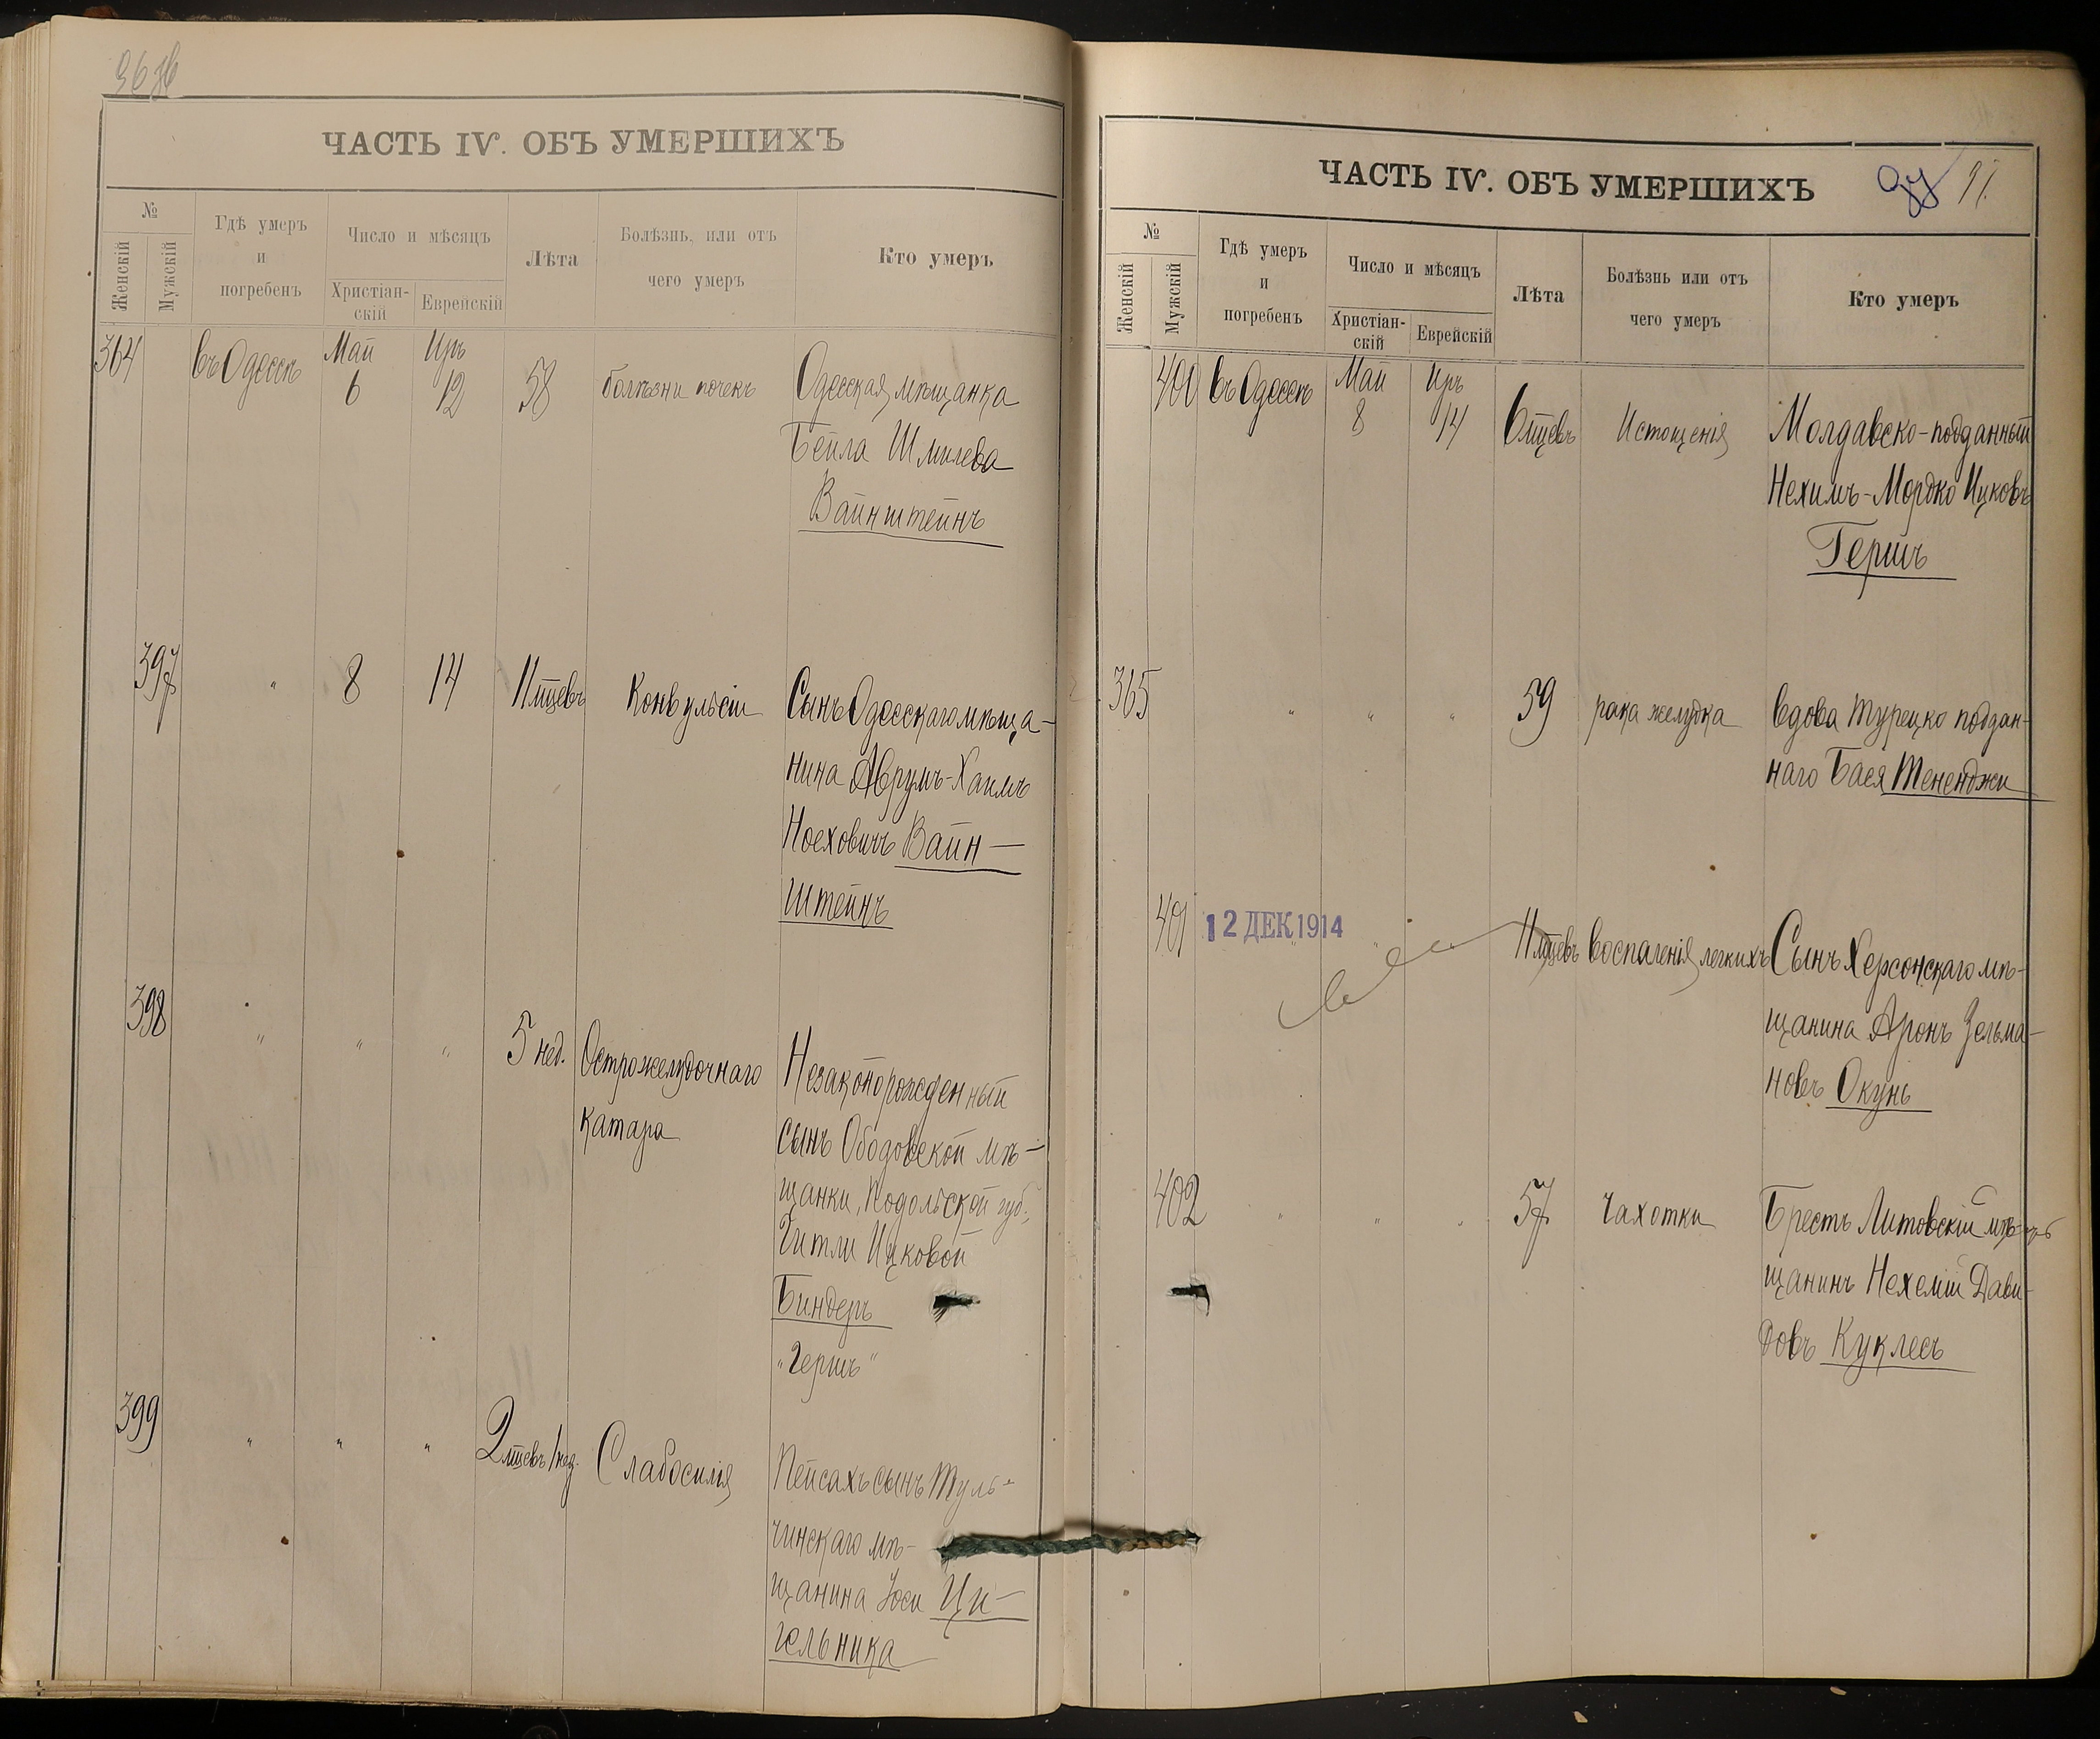 ЧАСТЬ IV. ОБЪ УМЕРШИХЪ
№
Женскій
Мужскій
Гдѣ умеръ
и
погребенъ
Число и мѣсяцъ
Христіан-
скій
Еврейскій
Лѣта
Болѣзнь, или отъ
чего умеръ
Кто умеръ
364 въ Одессѣ Май 6 Иръ 12 58 болѣзни почекъ Одесская мѣщанка
Бейла Шмилева
Вайнштейнъ
397 " 8 14 11 мѣцевъ Конвульсіи Сынъ Одесскаго мѣща-
нина Аврумъ-Хаимъ
Ноеховичъ Вайн-
штейнъ
398 " " " 5 нед. Острожелудочнаго Незаконорожденный
катара сынъ Ободовской мѣ-
щанки, Подольской губ.
Гитли Ицковой
Биндеръ
"Гершъ"
399 " " " 2 мѣцевъ 1 нед. Слабосилія Пейсахъ сынъ Туль-
чинскаго мѣ-
щанина Іоси Ци-
гельника
ЧАСТЬ IV. ОБЪ УМЕРШИХЪ 97.
№
Женскій
Мужскій
Гдѣ умеръ
и
погребенъ
Число и мѣсяцъ
Христіан-
скій
Еврейскій
Лѣта
Болѣзнь или отъ
чего умеръ
Кто умеръ
400 въ Одессѣ Май 8 Иръ 14 6 мѣцевъ Истощенія Молдавско-подданный
Нехимъ-Мордко Ицковъ
Гершъ
365 " " " 59 рака желудка Вдова Турецко поддан-
наго Бася Тененджи
401 12 ДЕК 1914 " " 11 мѣцевъ Воспаленія легкихъ Сынъ Херсонскаго мѣ-
щанина Аронъ Зельма-
новъ Окунь
402 " " " 57 Чахотки Брестъ Литовскій мѣ-
щанинъ Нехемій Дави-
довъ Куклесъ